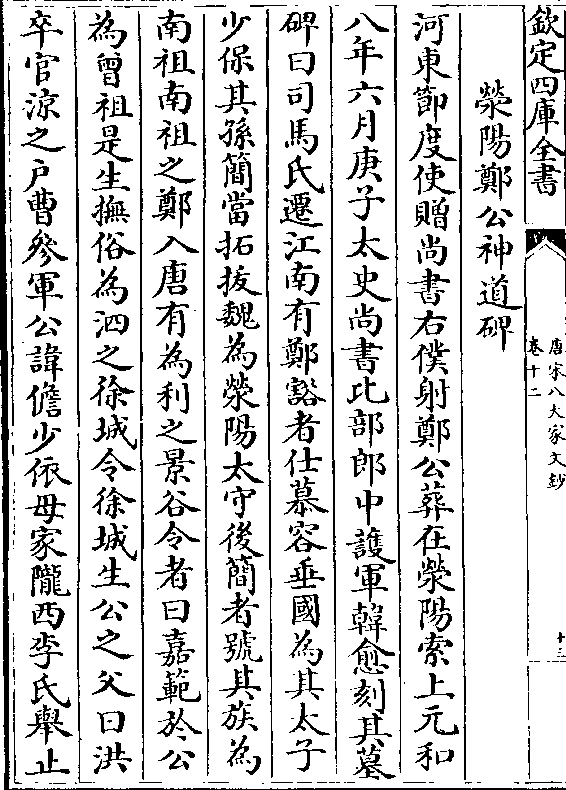 欽定四庫全書
唐宋八大家文鈔
卷十二
十三
滎陽鄭公神道碑
河東節度使贈尚書右僕射鄭公葬在滎陽索上元和
八年六月庚子太史尚書比部郎中護軍韓愈刻其墓
碑曰司馬氏遷江南有鄭豁者仕慕容垂國為其太子
少保其孫簡當拓拔魏為滎陽太守後簡者號其族為
南祖南祖之鄭入唐有為利之景谷令者曰嘉範於公
為曾祖是生撫俗為泗之徐城令徐城生公之父曰洪
卒官涼之户曹參軍公諱儋少依母家隴西李氏舉止